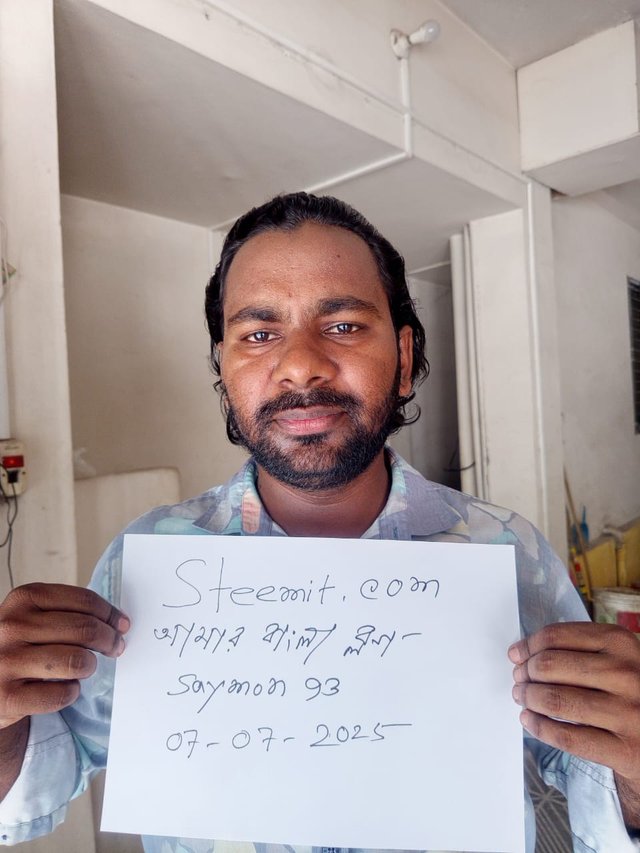 Steemit.com
আমার বাংলা ব্লগ-
Saymon 93
07-07-2025